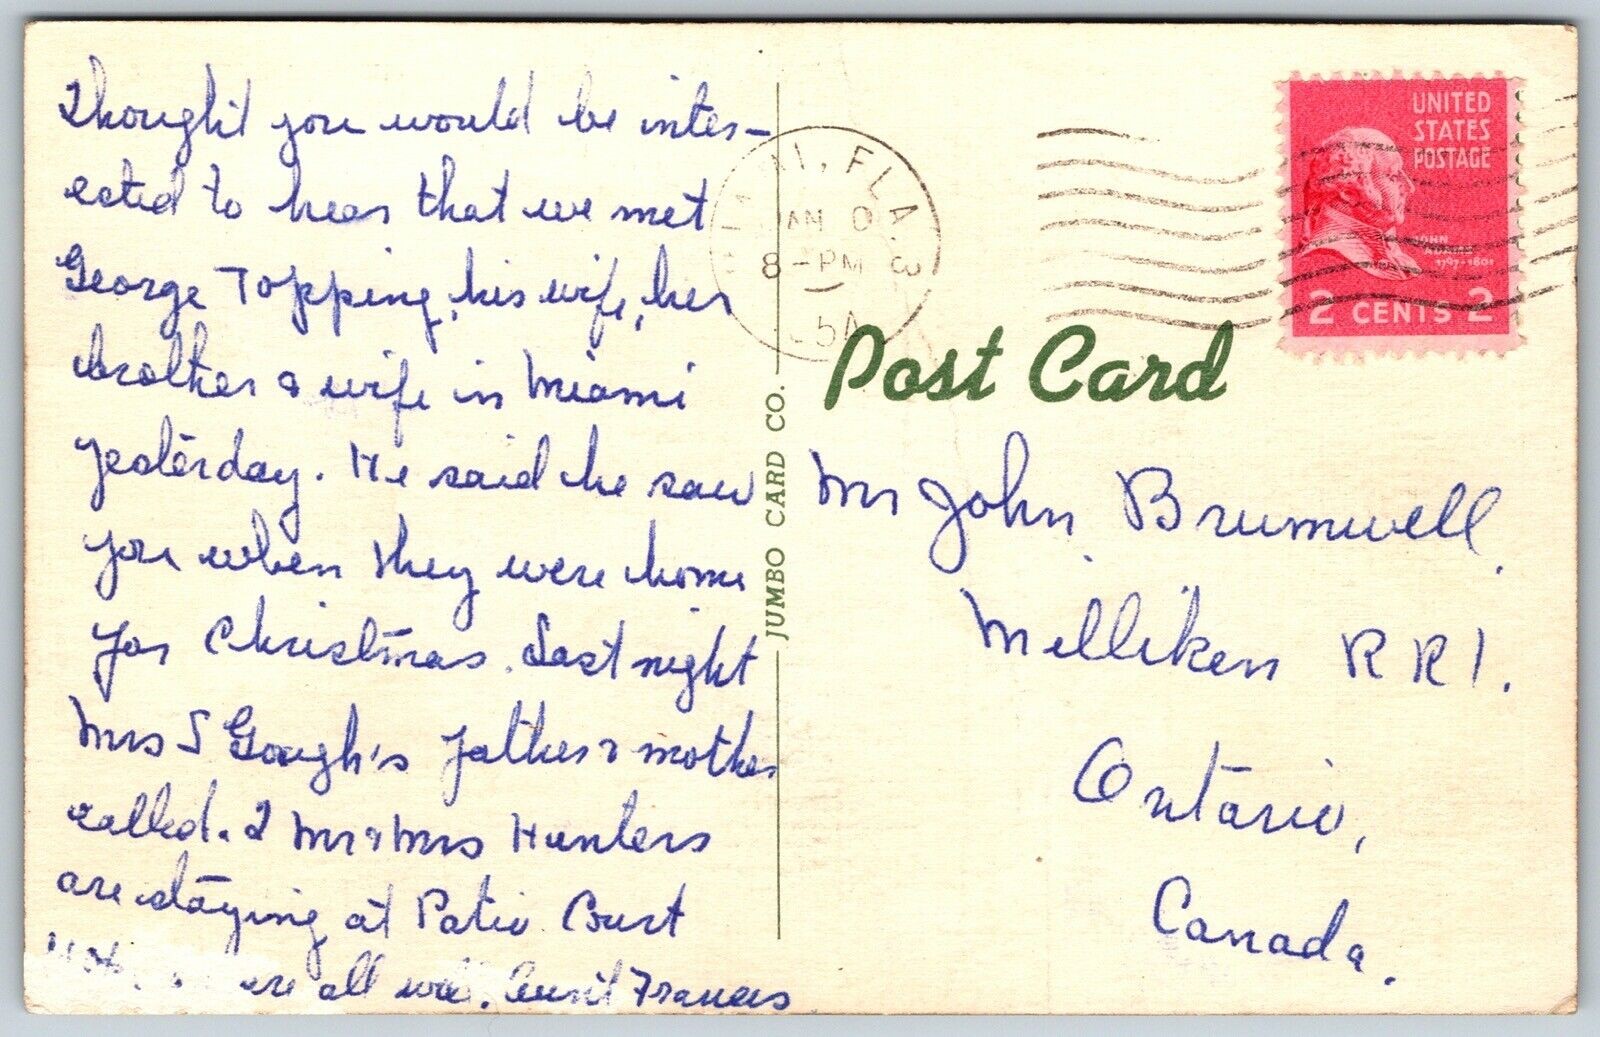 Thought you would be inter-
ested to hear that we met
George Topping, his wife, her
brother & wife in Miami
yesterday. He said he saw
you when they were home
for Christmas. Last night
Mrs S Gough's father & mother
called. I Mr & Mrs Hunters
are staying at Patio Court
are all well. Aunt Frances
JUMBO CARD CO.
MIAMI, FLA.
JAN
8 - PM
UNITED
STATES
POSTAGE
JOHN
ADAMS
1797-1801
2 CENTS 2
Post Card
Mr John Brumwell,
Milliken RR1.
Ontario,
Canada.